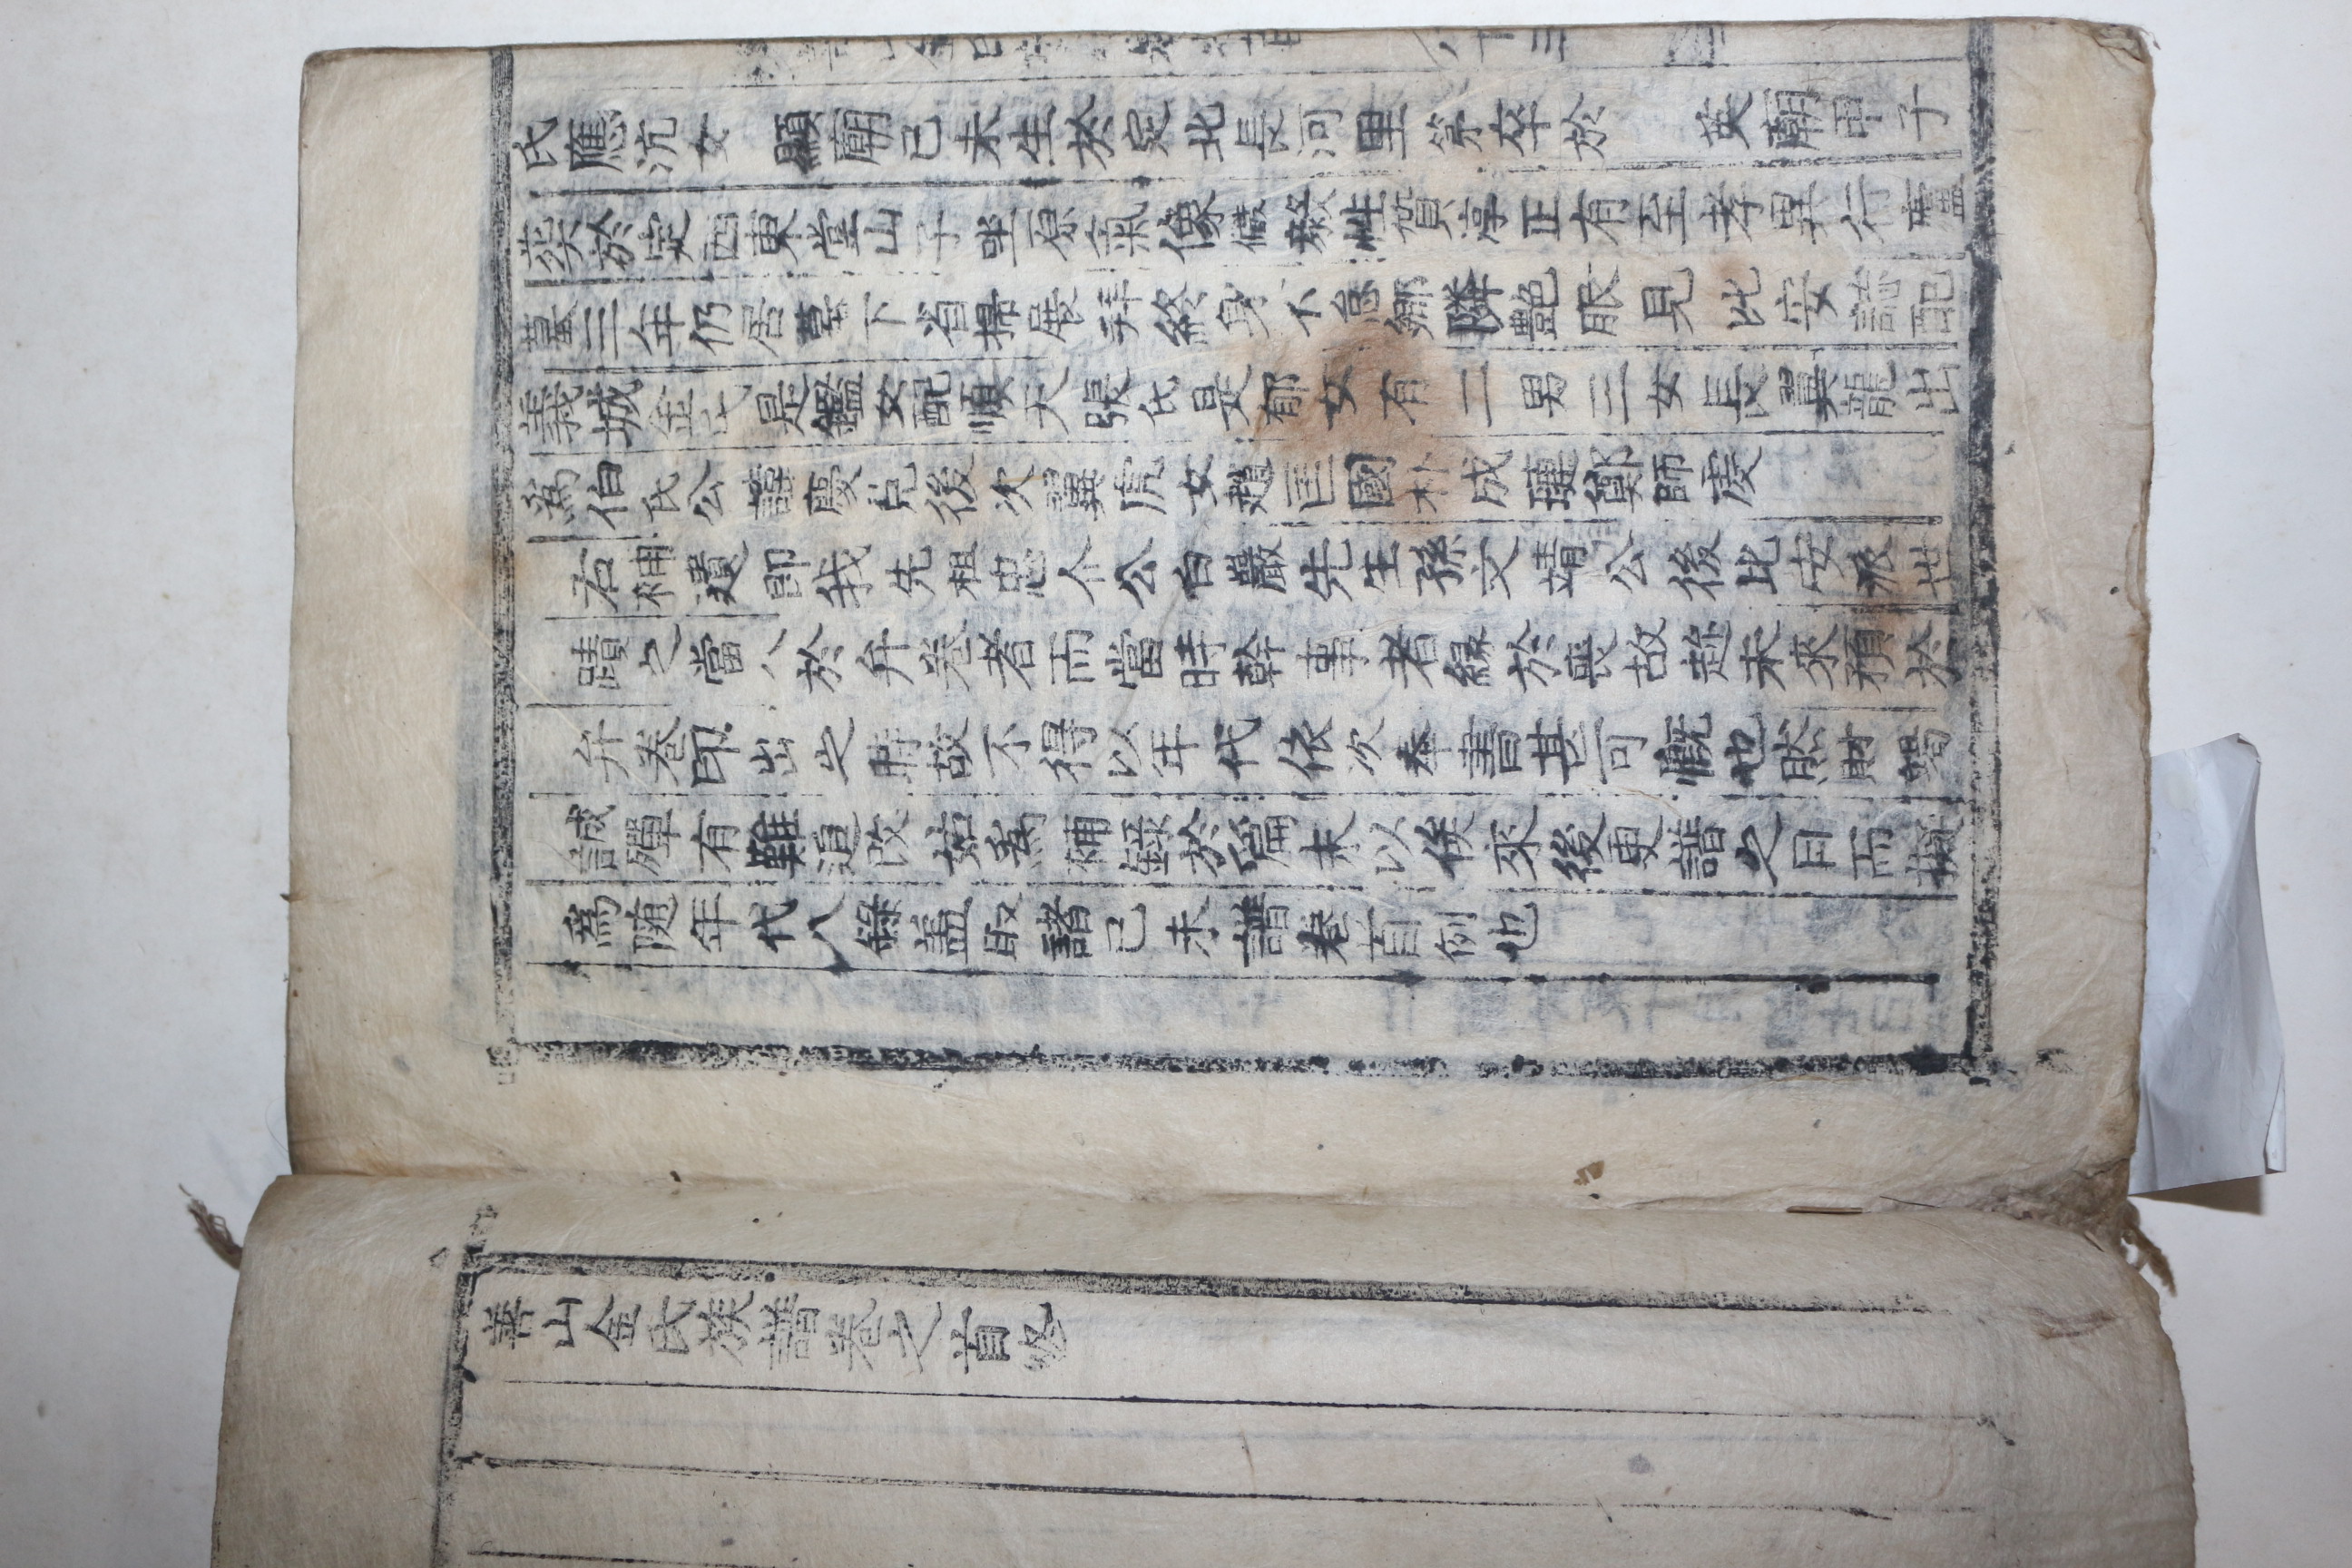 氏應沆女 顯廟己未生於定北長河里第卒於 英廟甲子
葬於定西東堂山子坐原氣像儼毅性質淳正有至孝異行廬
墓三年仍居墓下省掃展拜終身不怠鄉隣艶眼見比安誌配
義城金氏是鑑女配順天張氏是郁女有二男三女長翼龍出
爲伯氏公諱慶兌後次翼虎女趙匡國朴成璉鄭師虔
右補遺卽我先祖忠介公白巖先生孫文靖公後比安派世
蹟之當入於弁卷者而當時幹事者緣於喪故趂未來預於
弁卷印出之時故不得以年代依次奉書甚可慨也然財竭
誠殫有難追改姑爲補錄於篇末以俟來後更譜之日而擬
爲随年代入錄盖取諸己未譜卷首例也
善山金氏族譜卷之首終